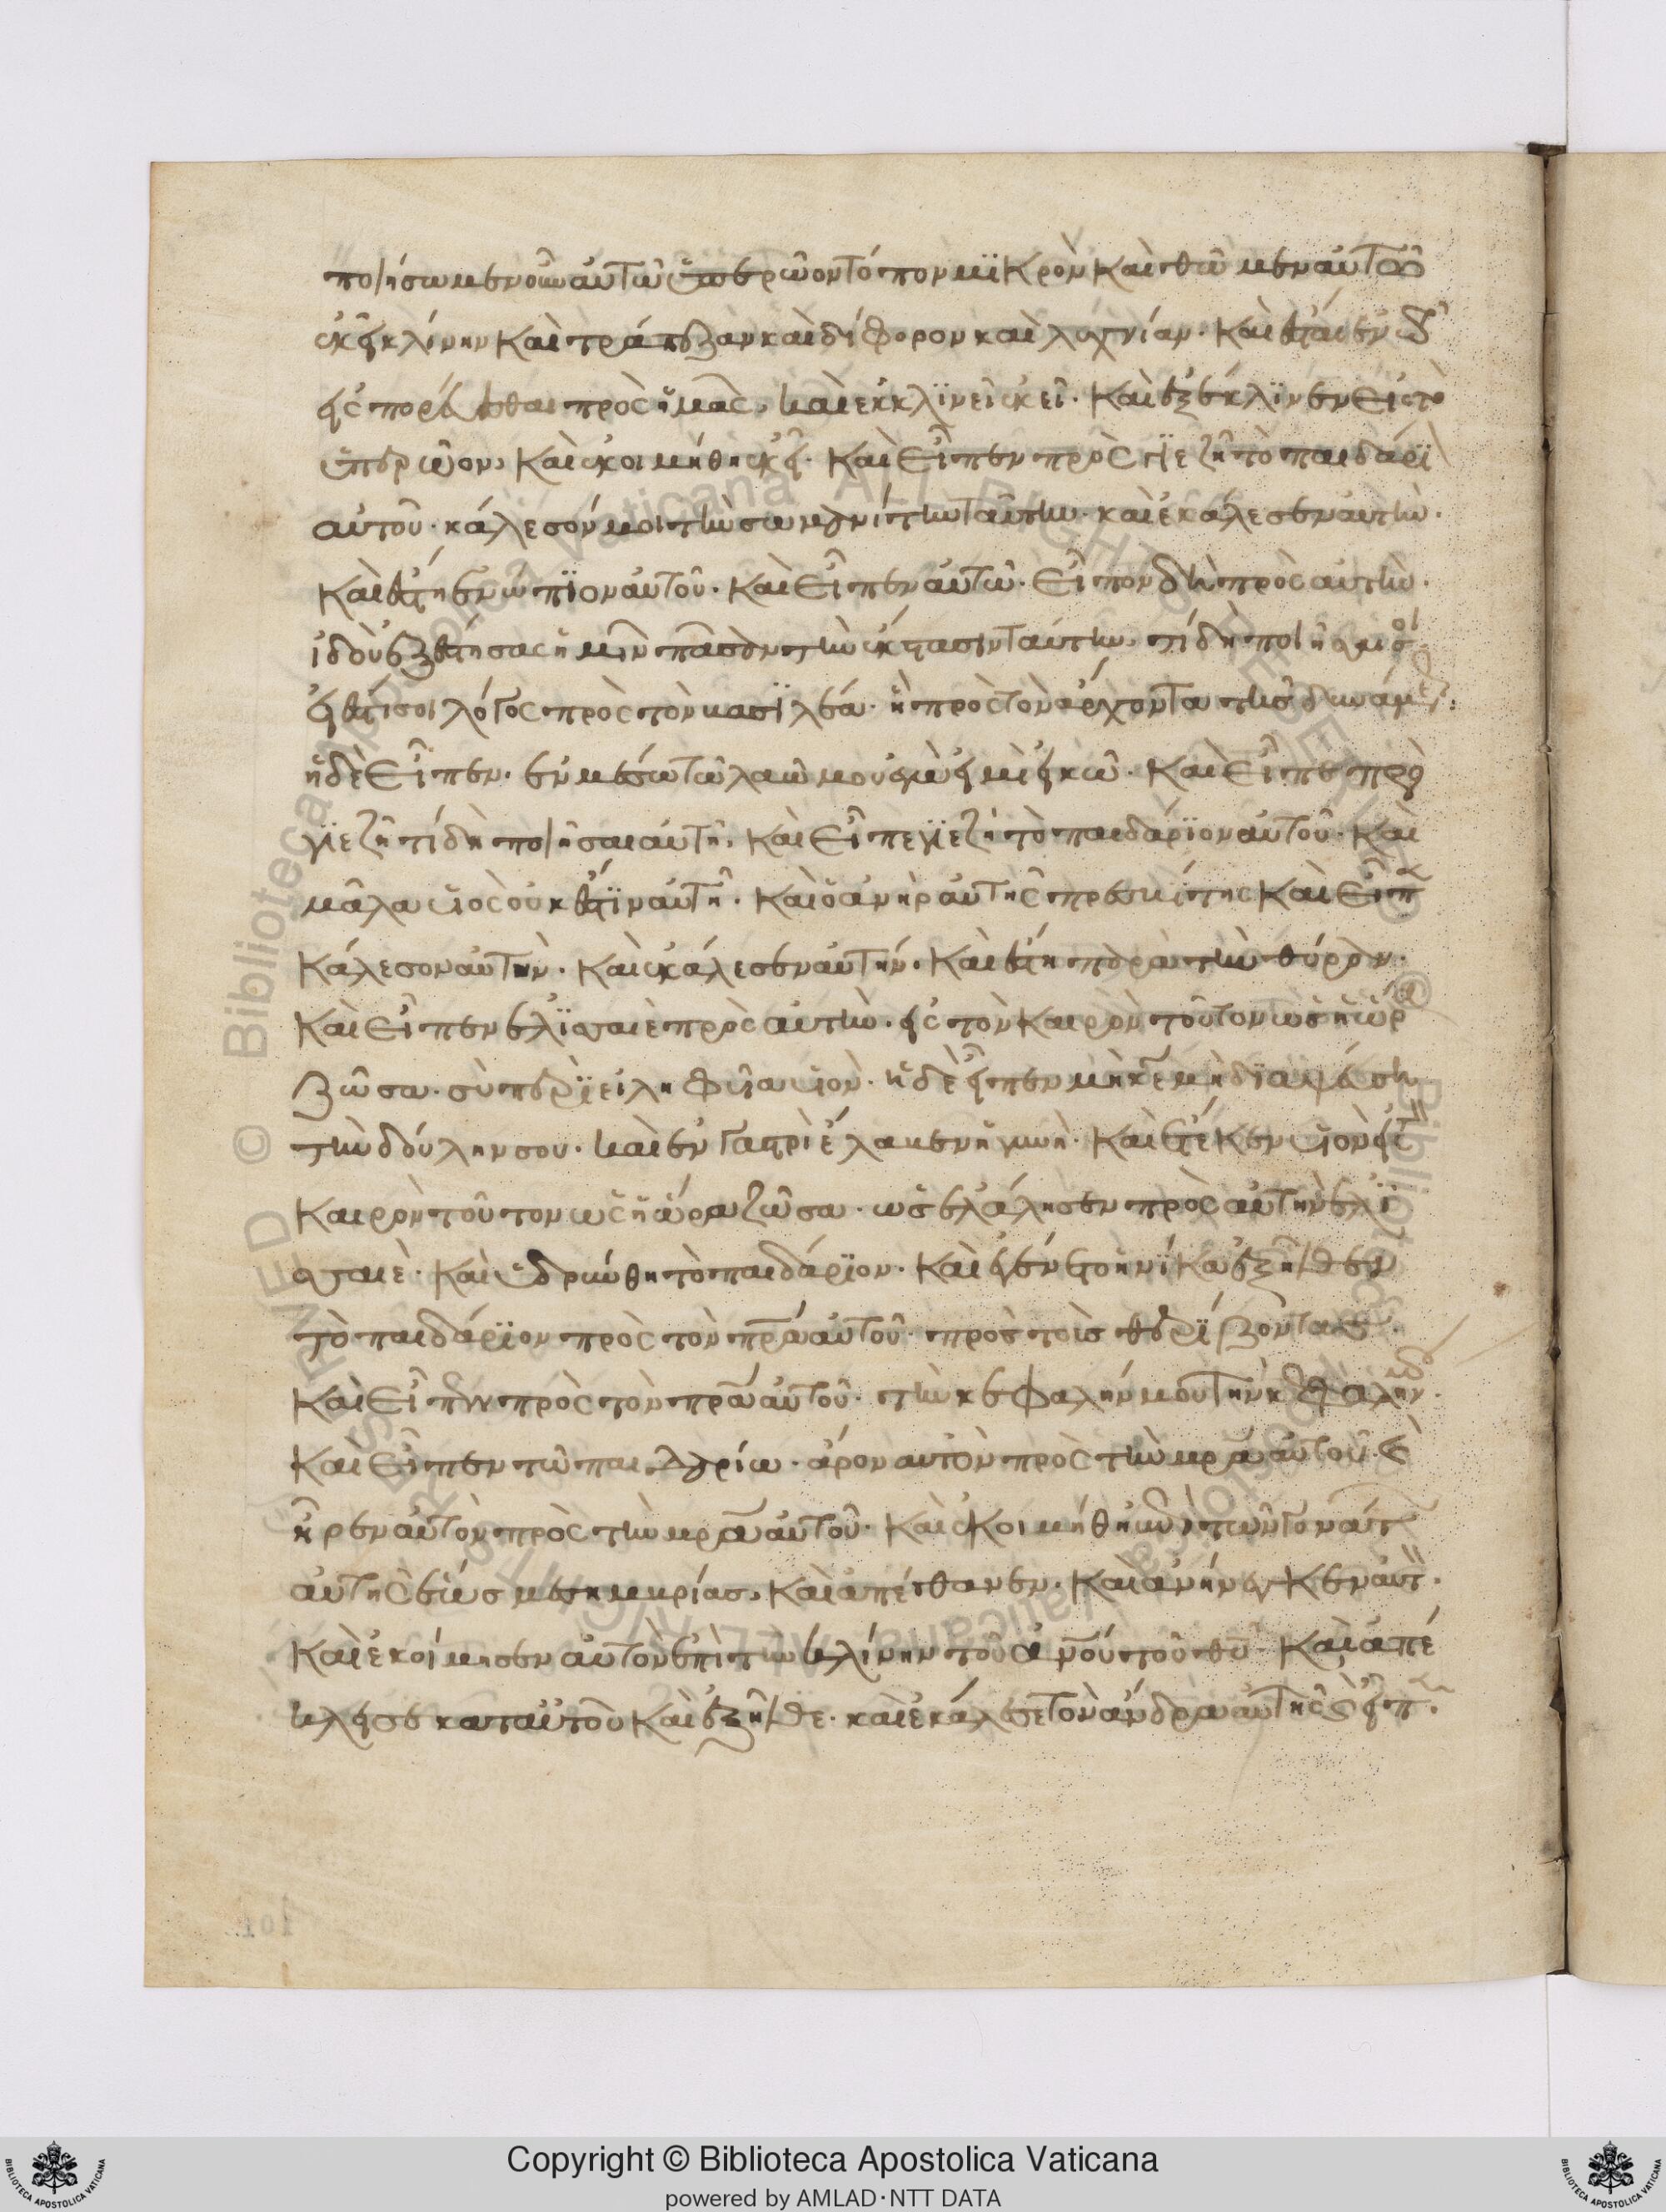 ποιήσωμεν οὖν αὐτῶ ὑπερῶον τόπον μϊκρὸν καὶ θῶμεν αὐτῶ
ἐκεῖ κλίνην καὶ τράπεζαν καὶ δίφορον καὶ λυχνίαν. καὶ ἔσται ἐν τῶ
εἰσπορεύεσθαι πρὸς ἡμᾶς, καὶ ἐκκλϊνεῖ ἐκεῖ. καὶ ἐξέκλϊνεν εἰς τὸ
ὑπερῶον, καὶ ἐκοιμήθη ἐκεῖ. καὶ εἶπεν πρὸς γϊεζῆ τὸ παιδάρϊ
αὐτοῦ. κάλεσόν μοι τὴν σωμανίτην ταύτην. καὶ ἐκάλεσεν αὐτὴν.
καὶ ἔστη ἐνώπϊον αὐτοῦ. καὶ εἶπεν αὐτῶ. εἶπον δὴ πρὸς αὐτὴν.
ἰδοὺ ἐξέστησας ἡμῖν πᾶσαν τὴν ἔκστασιν ταύτην, τί δὴ ποιῆσαι σοι
εἰ ἔστι σοι λόγος πρὸς τὸν βασϊλέα. ἢ πρὸς τὸν ἄρχοντα τῆς δυνάμεως:
ἡ δὲ εἶπεν. ἐν μέσω τῶ λαῶ μου ἐγὼ εἰμὶ οἰκῶ. καὶ εἶπε πρὸς
γϊεζῆ τί δὴ ποιῆσαι αὐτῆ, καὶ εἶπε γϊεζῆ τὸ παιδάρϊον αὐτοῦ. καὶ
μάλα υἱὸς οὐκ ἔστϊν αὐτῆ. καὶ ὁ ἀνὴρ αὐτῆς πρεσβύτης καὶ εἶπε
κάλεσον αὐτὴν. καὶ ἐκάλεσεν αὐτήν. καὶ ἔστη παρὰ τὴν θύραν.
καὶ εἶπεν ἐλϊσσαιὲ πρὸς αὐτὴν. εἰς τὸν καιρὸν τοῦτον ὡς ἡ ὥρα
ζῶσα. σὺ περϊειληφυῖα υἱὸν. ἡ δὲ εἶπεν μὴ κύριε μὴ δϊαψεύση
τὴν δούλην σου. καὶ ἐν γαστρὶ ἔλαβεν ἡ γυνὴ. καὶ ἔτεκεν υἱὸν εἰς τὸν
καιρὸν τοῦτον ὡς ἡ ὥρα ζῶσα. ὡς ἐλάλησεν πρὸς αὐτὴν ἐλϊ
σσαιὲ. καὶ ἡδρύνθη τὸ παιδάρϊον. καὶ ἐγένετο ἡνίκα ἐξῆλθεν
τὸ παιδάρϊον πρὸς τὸν πρα αὐτοῦ. πρὸς τοὺς θερϊζοντας.
καὶ εἶπεν πρὸς τὸν πρα αὐτοῦ. τὴν κεφαλήν μου τὴν κεφαλήν μου.
καὶ εἶπεν τῶ παιδαρίω. ἆρον αὐτὸν πρὸς τὴν μρα αὐτοῦ. καὶ
ἦρεν αὐτὸν πρὸς τὴν μρα αὐτοῦ. καὶ ἐκοιμήθη ἐπὶ τῶν γονάτων
αὐτῆς ἕως μεσημβρίας, καὶ ἀπέθανεν. καὶ ἀνήνεγκεν αὐτὸν.
καὶ ἐκοίμησεν αὐτὸν ἐπὶ τὴν κλίνην τοῦ ανου τοῦ θυ. καὶ ἀπέ
κλεισε κατ αὐτοῦ καὶ ἐξῆλθε. καὶ ἐκάλεσε τὸν ἄνδρα αὐτῆς καὶ εἶπεν.
Copyright © Biblioteca Apostolica Vaticana
powered by AMLAD·NTT DATA